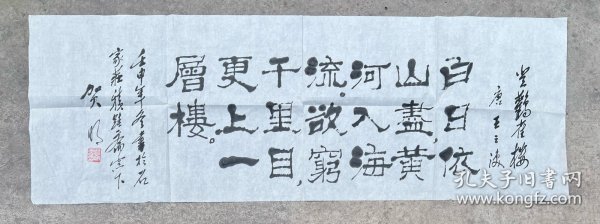 登鸛雀樓
唐 王之渙
白日依
山盡,黃
河入海
流。欲窮
千里目,
更上一
層樓。
壬申年冬書於石
家莊
賀
孔夫子旧书网
kongfz.com
孔夫子旧书网
www.kongfz.com